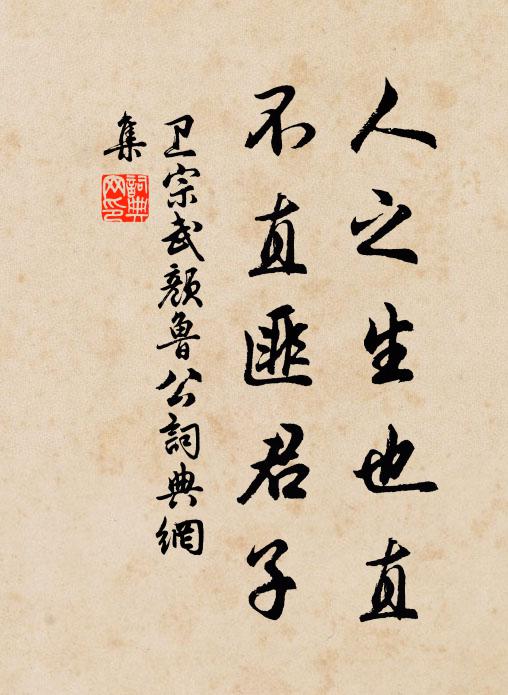 人之生也直
不直匪君子
卫宗武颜魯公詞典網
集
詞典
网印